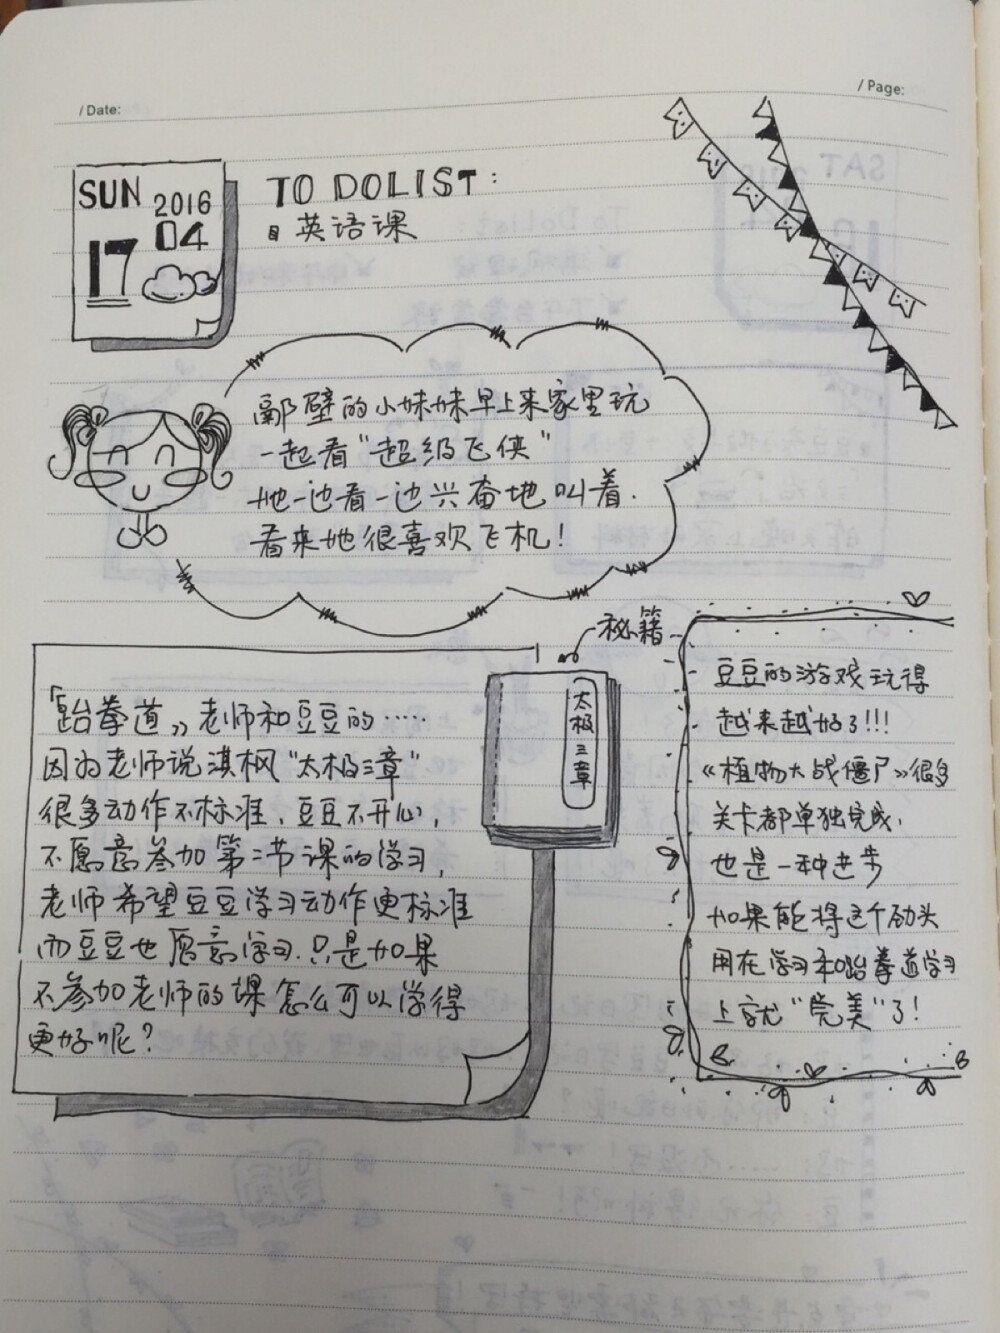 / Date:
/ Page:
SUN
2016
04
17
TO DOLIST:
英语课
鄙壁的小妹妹早上来家里玩
一起看“超级飞侠”
她一边看一边兴奋地叫着.
看来她很喜欢飞机!
秘籍
太极三章
「跆拳道」老师和豆豆的……
因为老师说淇枫“太极三章”
很多动作不标准、豆豆不开心,
不愿意参加第二节课的学习,
老师希望豆豆学习动作更标准
而豆豆也愿意学习.只是如果
不参加老师的课怎么可以学得
更好呢?
豆豆的游戏玩得
越来越好了!!!
《植物大战僵尸》很多
关卡都单独完成.
也是一种进步
如果能将这个劲头
用在学习和跆拳道学习
上就“完美”了!